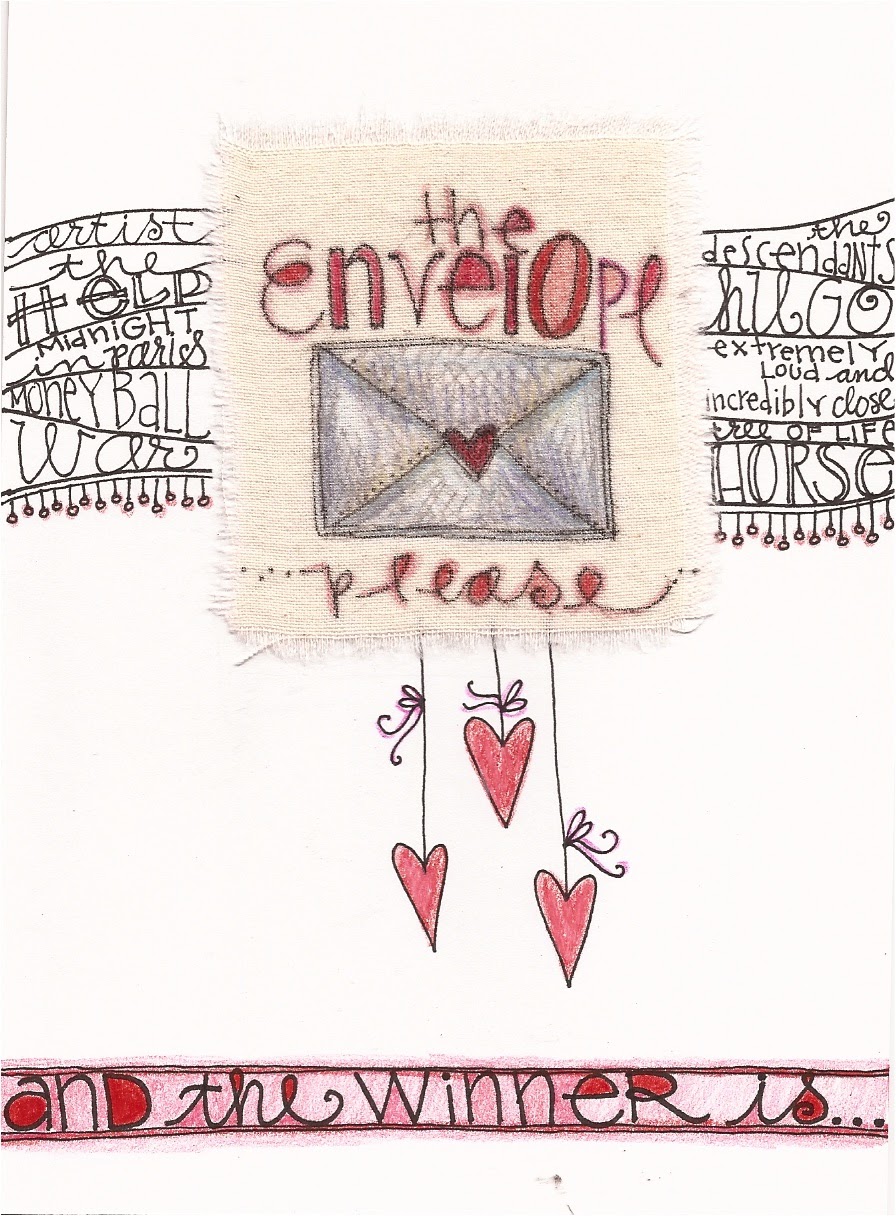 the
Envelope
please
artist
the
HELP
MidNiGHT
in paris
MONEYBaLL
War
the
descendANTS
hUGO
extremely
Loud and
incredibly close
tree OF LIFE
HORSE
aND the WinneR is...